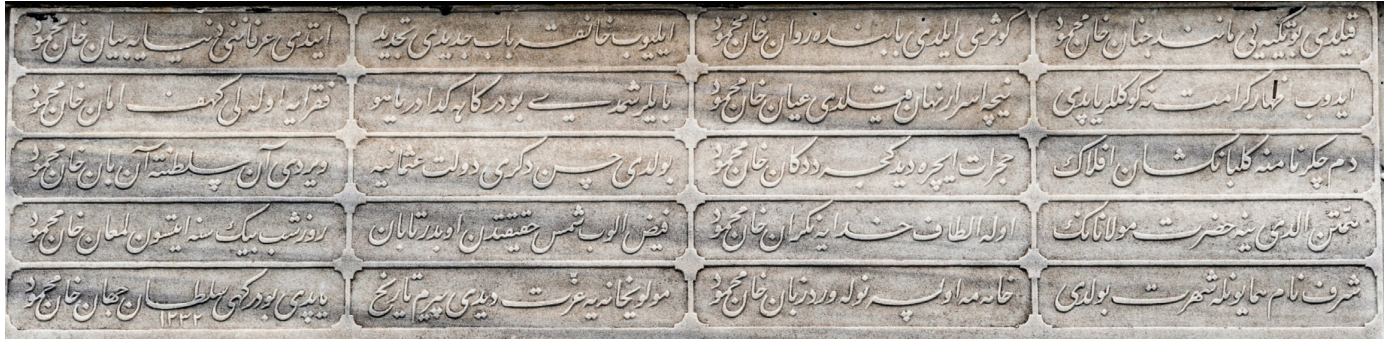 قیلدی بو تکیه یی مانند جنان خان محمود
کوثری ایلدی یا بنده روان خان محمود
ایلیوب خانقه باب جدیدی تجدید
ایتدی عرفانی سایه بیان خان محمود
ایدوب اظهار کرامت نه کوکللر یاپدی
نیجه اسرار نهان قیلدی عیان خان محمود
شمدی بو درکاهه کدا دریا هو
فقرایه اوله لی کهف امان خان محمود
دم چکر نامنه کلبانک کشان افلاک
حجرات ایچره دیدکجه ددکان خان محمود
بولدی حسن دکری دولت عثمانیه
ویردی آن سلطنته آن بان خان محمود
همتن الدی ینه حضرت مولانانک
اوله الطاف خدایه نکران خان محمود
فیض الوب شمس حقیقتدن او بدر تابان
روز شب بیک سنه ایتسون لمعان خان محمود
شرف نام همایونله شهرت بولدی
خامه مه اولسه نوله ورد زبان خان محمود
مولویخانه یه عزت دیدی پیرم تاریخ
یاپدی بو درکهی سلطان جهان خان محمود
١٢٣٢